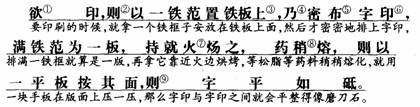 欲① 印，则②以一铁范置铁板上③，乃④密布⑤字印⑥
要印刷的时候，就拿一个铁框子安放在铁板上面，然后才密密地排上字印，
满铁范为一板，持就火⑦炀之，药稍⑧熔，则以
排满一铁框就算是一版，再拿它靠近火边烘烤，等松脂等药料稍稍熔化，就用
一平板按其面，则⑨字平如砥。
一块手板在版面上压一压，那么字印与字印之间就会平整得像磨刀石。